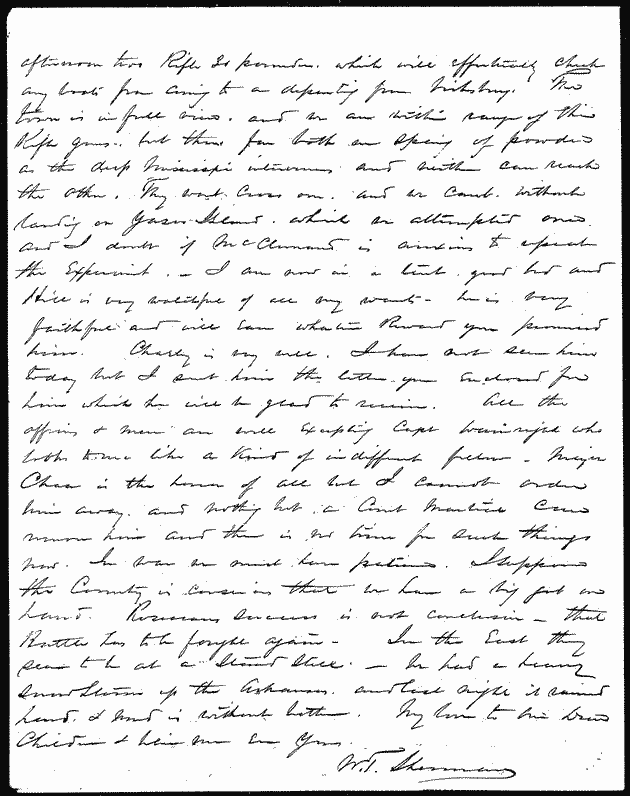 afternoon two Rifle 30 pounders. which will effectually check
any boats from coming to or departing from Vicksburg. The
town is in full view. and we are within range of their
Rifle guns. but thus far both are sparing of powder
as the deep Mississippi intervenes and neither can reach
the other. They wont cross over. and we cant. without
landing on Yazoo Island. which we attempted once
and I doubt if McClernand is anxious to repeat
the Experiment. - I am now in a tent. good bed and
Hill is very watchful of all my wants - he is very
faithful and will Earn whatever Reward you promised
him. Charley is very well. I have not seen him
today but I sent him the letter you Enclosed for
him which he will be glad to receive. All the
officers & men are well Excepting Capt
looks to me like a Kind of indifferent fellow - Major
is the of all but I cannot order
him away. and nothing but a Court Martial can
remove him and there is no time for such things
now. In war we must have patience. I suppose
the Country is conscious that we have a big job on
hand. Rosecrans success is not conclusive - that
Battle has to be fought again - In the East they
seem to be at a Stand Still. - We had a heavy
snow storm up the Arkansas. and last night it rained
hard. & mud is without bottom. My love to
Children & believe me Ever Yours.
W.T. Sherman